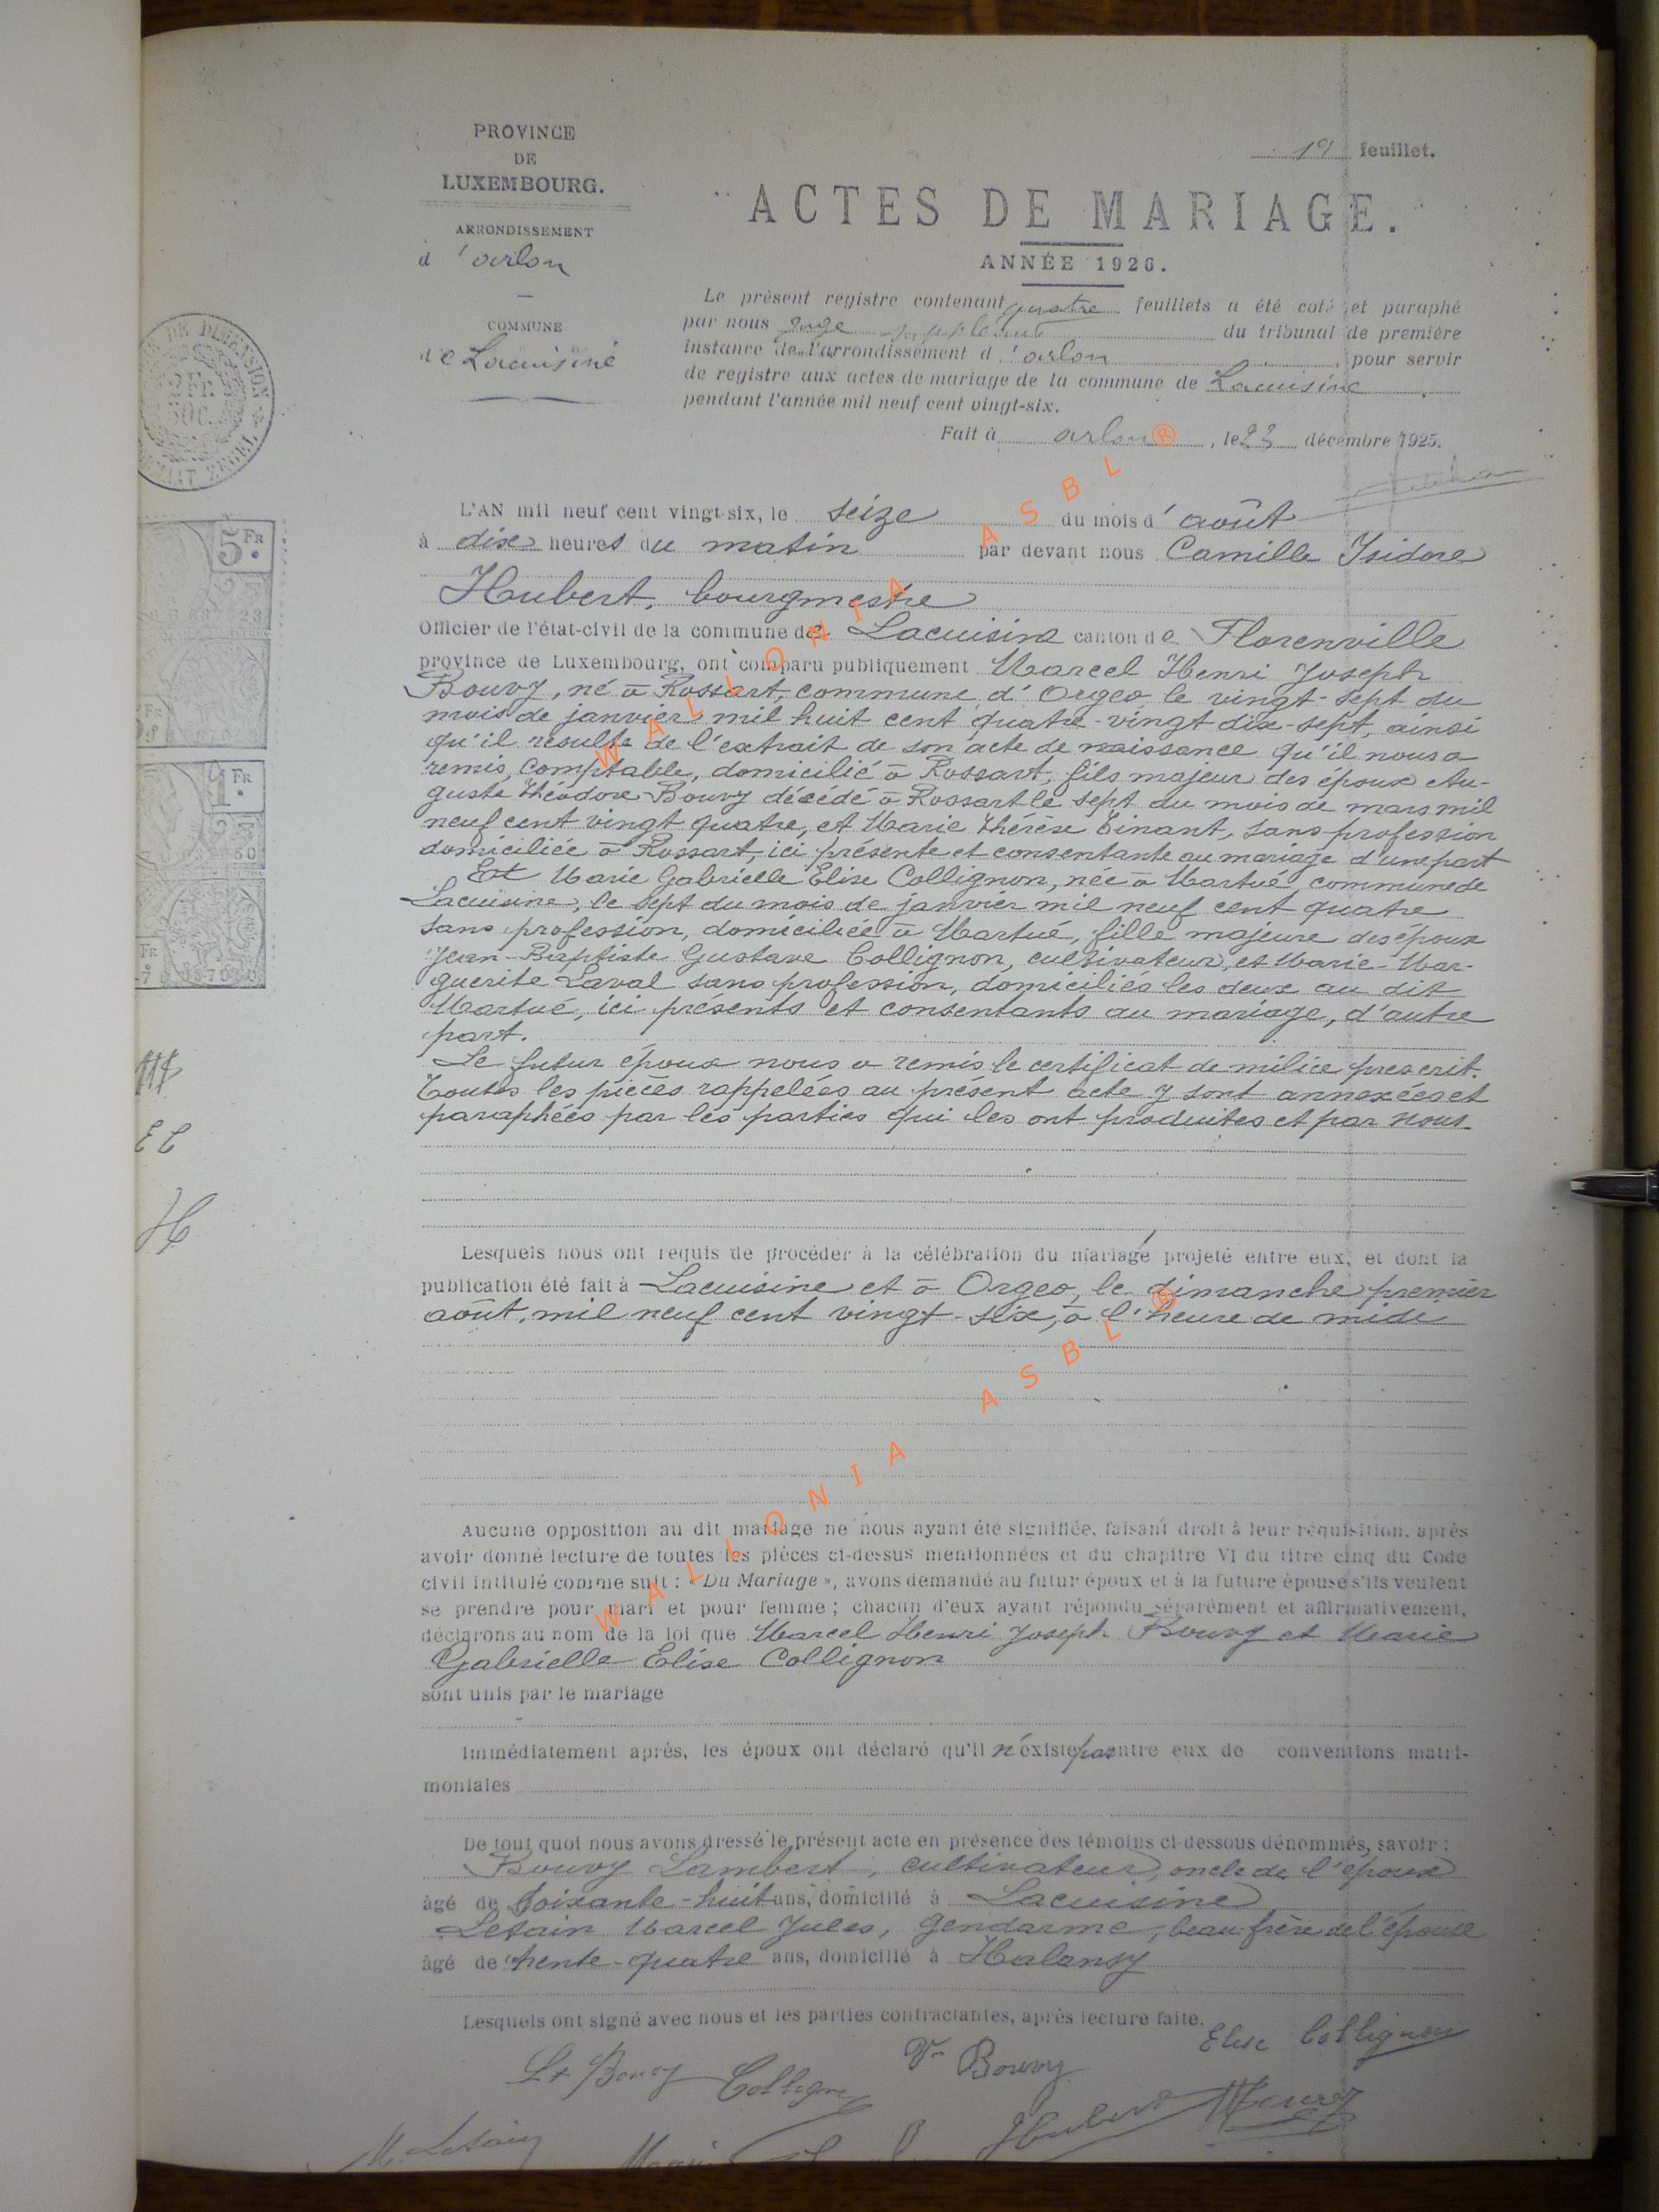 PROVINCE
DE
LUXEMBOURG.
ARRONDISSEMENT
d'arlon
COMMUNE
de Lacuisine
feuillet.
ACTES DE MARIAGE.
ANNÉE 1926.
Le présent registre contenant quatre feuillets a été coté et paraphé
par nous Juge suppléant du tribunal de première
instance de l'arrondissement d'arlon, pour servir
de registre aux actes de mariage de la commune de Lacuisine
pendant l'année mil neuf cent vingt-six.
Fait à arlon, le 23 décembre 1925.
5 FR
1 FR
L'AN mil neuf cent vingt-six, le seize du mois d'août
à dix heures du matin par devant nous Camille Isidore
Hubert, bourgmestre
Officier de l'état-civil de la commune de Lacuisine canton de Florenville
province de Luxembourg, ont comparu publiquement Marcel Henri Joseph
Bouvy, né à Rossart, commune d'Orgeo, le vingt-sept du
mois de janvier mil huit cent quatre-vingt dix-sept, ainsi
qu'il résulte de l'extrait de son acte de naissance qu'il nous a
remis, comptable, domicilié à Rossart, fils majeur des époux Au-
guste Théodore Bouvy décédé à Rossart le sept du mois de mars mil
neuf cent vingt quatre, et Marie Thérèse Einant, sans profession
domiciliée à Rossart, ici présente et consentante au mariage d'une part
Et Marie Gabrielle Elise Collignon, née à Martué, commune de
Lacuisine, le sept du mois de janvier mil neuf cent quatre
sans profession, domiciliée à Martué, fille majeure des époux
Jean-Baptiste Gustave Collignon, cultivateur, et Marie-Mar-
guerite Laval sans profession, domiciliés les deux au dit
Martué, ici présents et consentants au mariage, d'autre
part.
Le futur époux nous a remis le certificat de milice prescrit.
Toutes les pièces rappelées au présent acte y sont annexées et
paraphées par les parties qui les ont produites et par nous
EC
H
Lesquels nous ont requis de procéder à la célébration du mariage projeté entre eux, et dont la
publication été fait à Lacuisine et à Orgeo, le dimanche premier
août, mil neuf cent vingt-six, à l'heure de midi
Aucune opposition au dit mariage ne nous ayant été signifiée, faisant droit à leur réquisition, après
avoir donné lecture de toutes les pièces ci-dessus mentionnées et du chapitre VI du titre cinq du Code
civil intitulé comme suit : « Du Mariage », avons demandé au futur époux et à la future épouse s'ils veulent
se prendre pour mari et pour femme ; chacun d'eux ayant répondu séparément et affirmativement,
déclarons au nom de la loi que Marcel Henri Joseph Bouvy et Marie
Gabrielle Elise Collignon
sont unis par le mariage
Immédiatement après, les époux ont déclaré qu'il n'existe pas entre eux de conventions matri-
moniales
De tout quoi nous avons dressé le présent acte en présence des témoins ci-dessous dénommés, savoir :
Bouvy Lambert, cultivateur, oncle de l'époux
âgé de soixante-huit ans, domicilié à Lacuisine
Lesain Marcel Jules, gendarme, beau-frère de l'épouse
âgé de trente-quatre ans, domicilié à Halanzy
Lesquels ont signé avec nous et les parties contractantes, après lecture faite.
Elise Collignon
Lt Bouvy Collignon Ve Bouvy
M. Lesain Hubert MBouvy
WALLONIA ASBL ®
WALLONIA ASBL ®